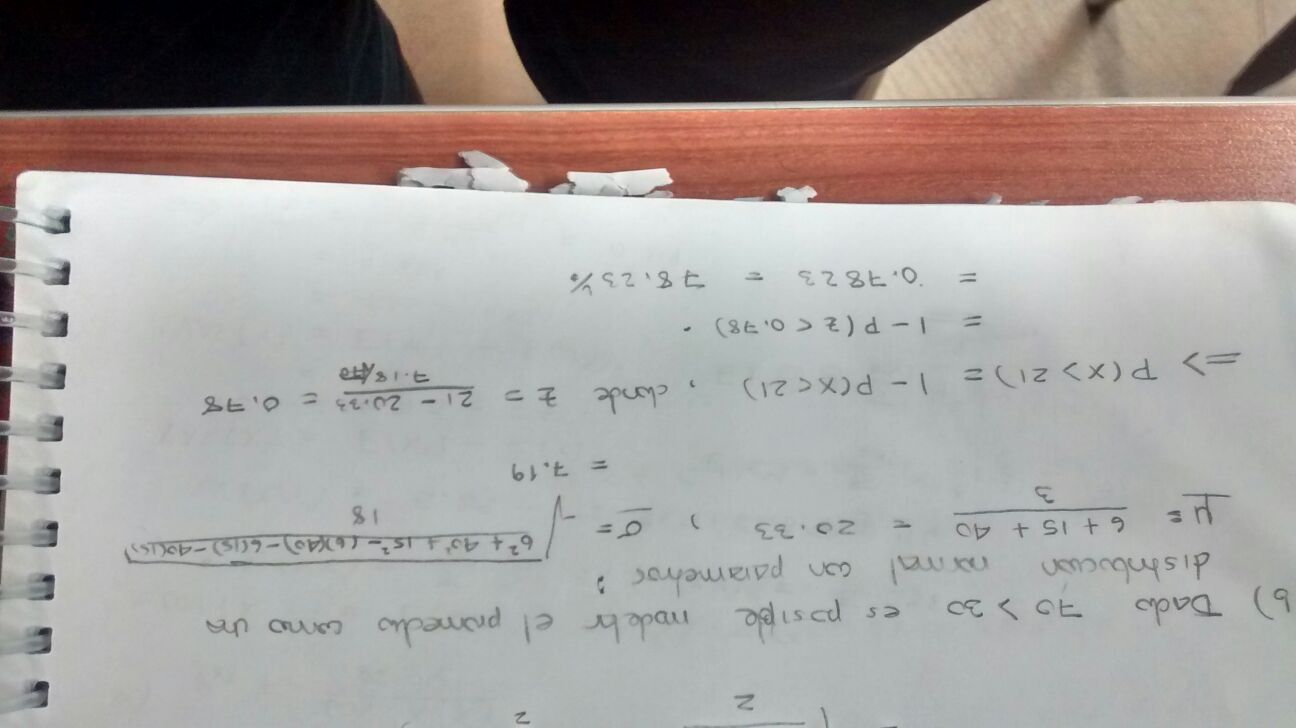 2 2
b) Dado 70 > 30 es posible modelar el promedio como una
distribucion normal con parametros :
μ = (6 + 15 + 40)/3 = 20.33 , σ = √((6² + 40² + 15² - (6)(40) - 6(15) - 40(15))/18)
= 7.19
=> P(X > 21) = 1 - P(X < 21) , donde z = (21 - 20.33)/(7.18/√70) = 0.78
= 1 - P(z < 0.78) .
= 0.7823 = 78.23%